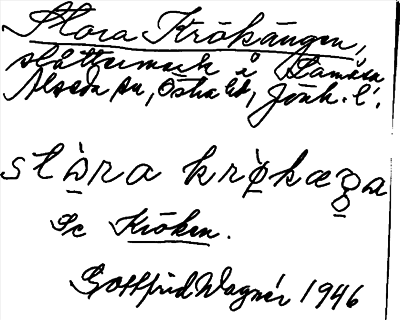 Stora Krökängen,
slåttermark å Ramåsa
Alseda sn, Östra hd, Jönk. l.
stòra krø̀kæŋa
Se Kröken.
Gottfrid Wagnér 1946